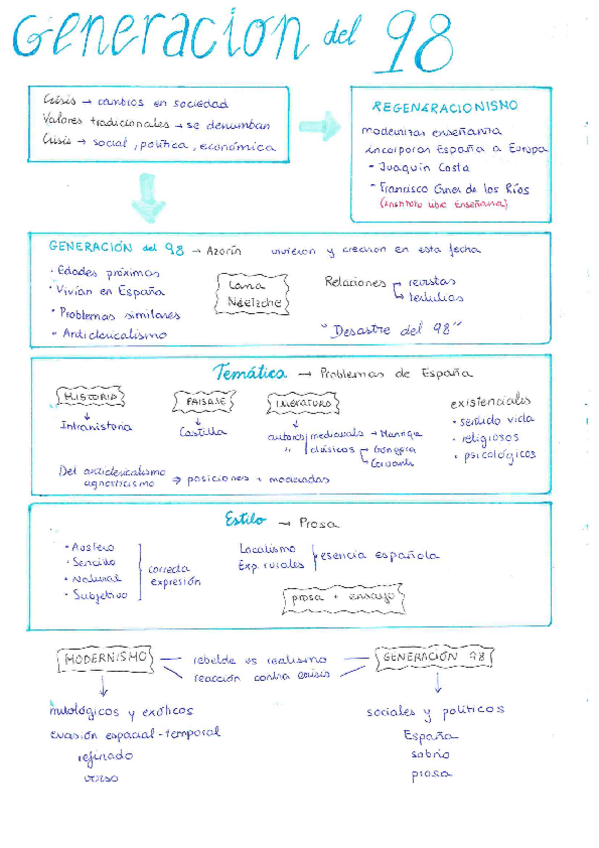 Generacion del 98
Crisis → cambios en sociedad
Valores tradicionales → se derrumban
Crisis → social, política, económica
REGENERACIONISMO
modernizar enseñanza
incorporar España a Europa
- Joaquín Costa
- Francisco Giner de los Ríos
(Instituto Libre Enseñanza)
GENERACIÓN del 98 → Azorín vivieron y crearon en esta fecha
· Edades próximas
· Vivían en España
· Problemas similares
- Anticlericalismo
Larra
Nietzche
Relaciones
revistas
tertulias
"Desastre del 98"
Temática → Problemas de España
HISTORIA
Intrahistoria
PAISAJE
Castilla
LITERATURA
autores medievales → Manrique
" clásicos
Góngora
Cervantes
existenciales
· sentido vida
· religiosos
· psicológicos
Del anticlericalismo
agnosticismo → posiciones + moderadas
Estilo → Prosa
· Austero
· Sencillo
· Natural
· Subjetivo
correcta
expresión
Localismo
Exp. rurales
esencia española
prosa + ensayo
MODERNISMO
rebelde vs realismo
reacción contra crisis
GENERACIÓN 98
mitológicos y exóticos
evasión espacial-temporal
refinado
verso
sociales y políticos
España
sobrio
prosa